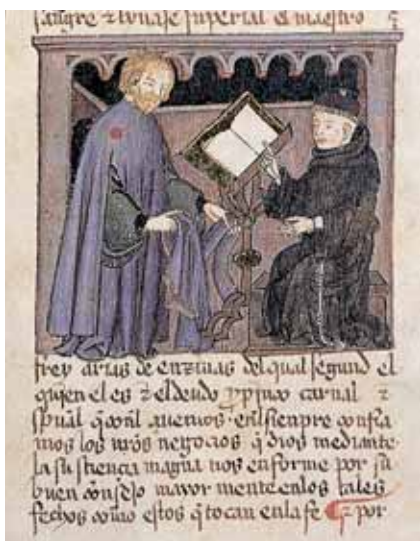 sangre ⁊ linaje ynperial el maestro
frey arias de enzinas del qual segund el
quien el es ⁊ el deudo ⁊ primo carnal ⁊
spũal q̃ con̄l auemos ⁊ en̄l sienpre confia
mos los nr̃os negoçios q̃ dios mediante
la su sciencia magna nos enforme por su
buen conseio mayor mente en los tales
fechos como estos q̃ tocan en la fe ⁊ por